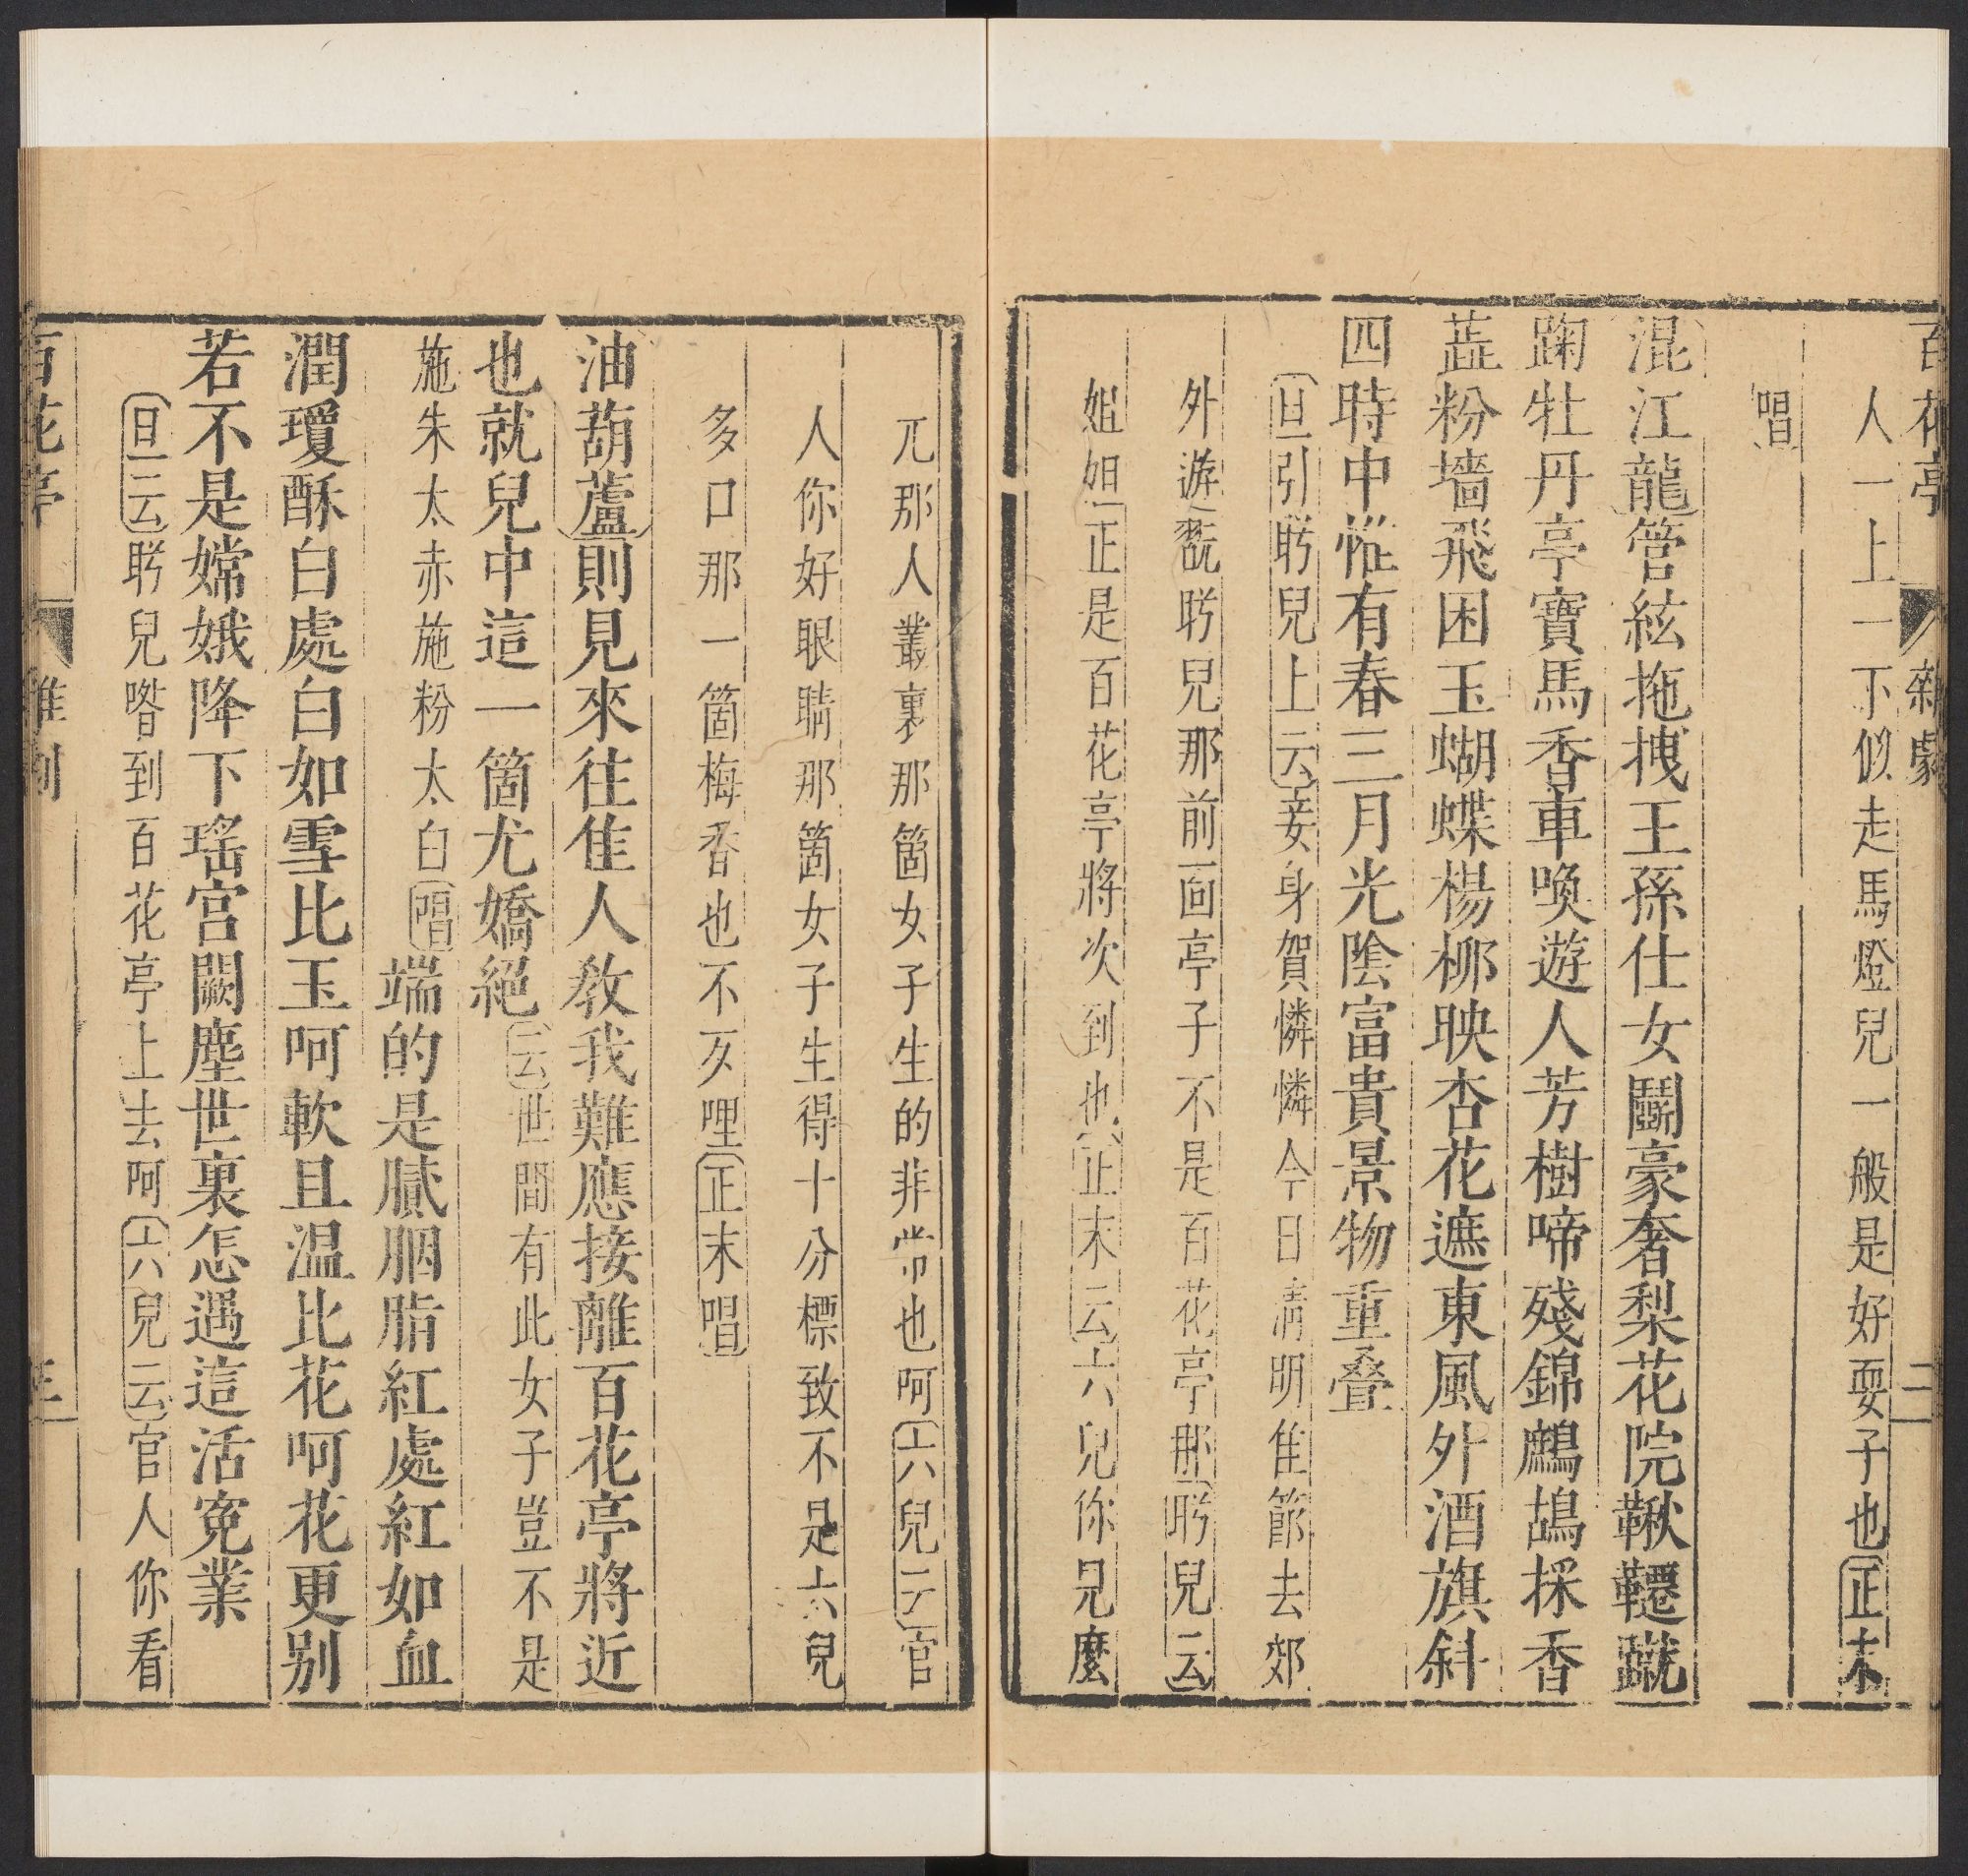 百花亭 雜劇 二
人一上一下似走馬燈兒一般是好耍子也正末
唱
混江龍管絃拖拽王孫仕女鬭豪奢梨花院鞦韆蹴
踘牡丹亭寶馬香車喚遊人芳樹啼殘錦鷓鴣採香
蘂粉墻飛困玉蝴蝶楊柳映杏花遮東風外酒旗斜
四時中惟有春三月光陰富貴景物重叠
旦引盻兒上云妾身賀憐憐今日清明佳節去郊
外遊翫盻兒那前面亭子不是百花亭那盻兒云
姐姐正是百花亭將次到也正末云六兒你見麼
兀那人叢裏那箇女子生的非常也呵六兒云官
人你好眼睛那箇女子生得十分標致不是六兒
多口那一箇梅香也不歹哩正末唱
油葫蘆則見來往佳人教我難應接離百花亭將近
也就兒中這一箇尤嬌絕云世間有此女子豈不是
施朱太赤施粉太白唱端的是膩胭脂紅處紅如血
潤瓊酥白處白如雪比玉呵軟且温比花呵花更别
若不是嫦娥降下瑤宮闕塵世裏怎遇這活寃業
旦云盻兒喒到百花亭上去呵六兒云官人你看
百花亭 雜劇 三